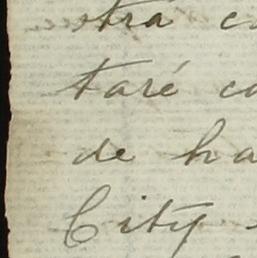 stra c
taré co
de ha
City